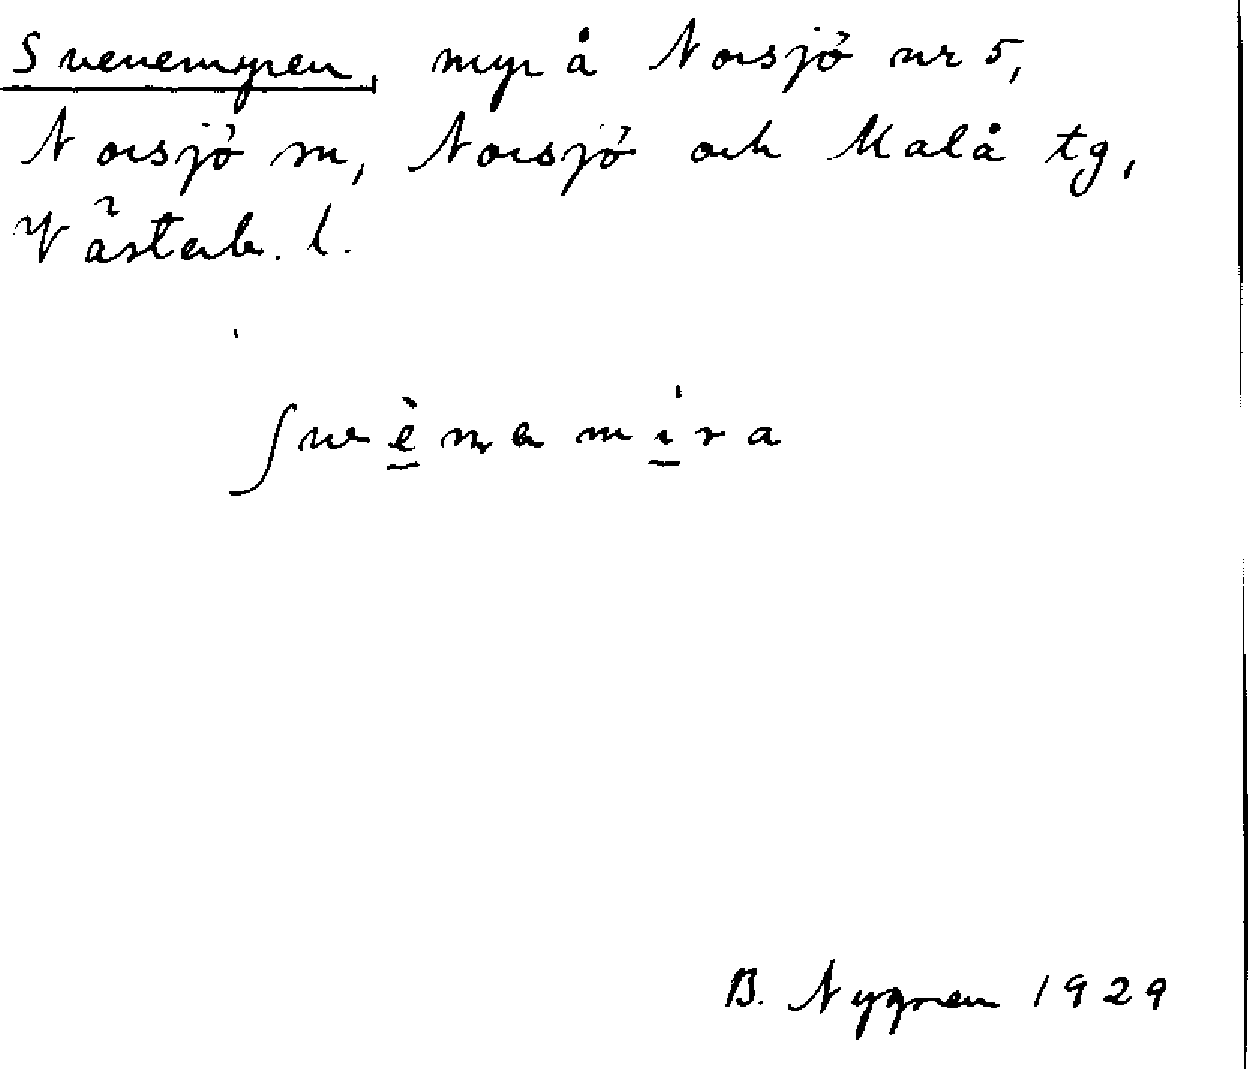 Svenemyren, myr å Norsjö nr 5,
Norsjö sn, Norsjö och Malå tg,
Västerb. l.
B. Nygren 1929